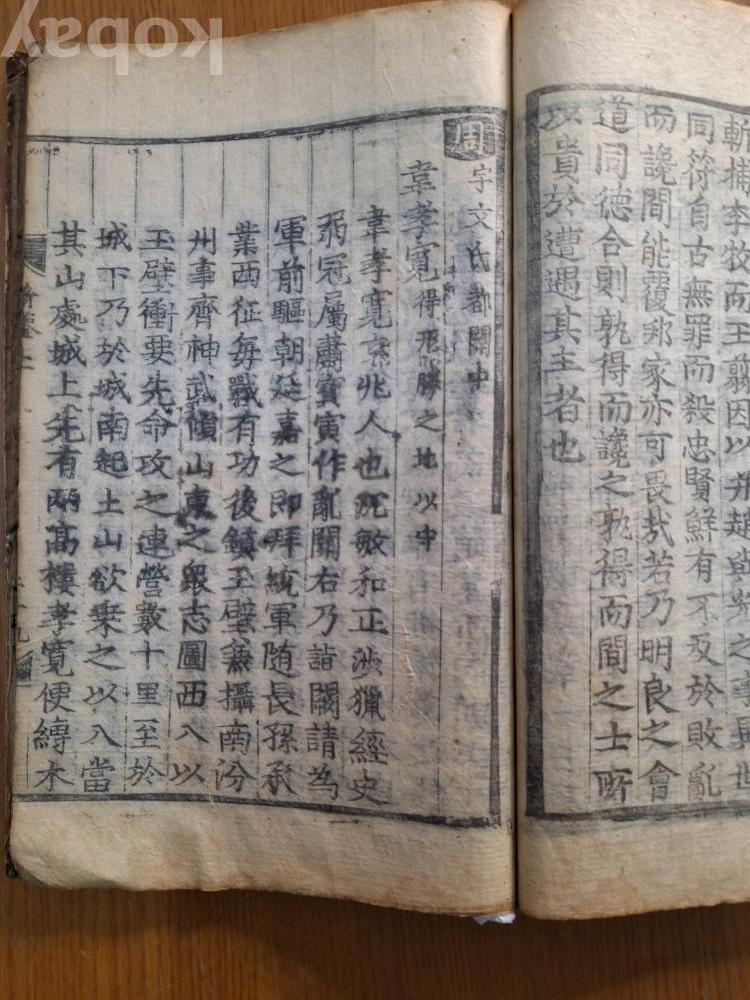 斬捕李牧而王翦因以并趙與之事異世
同符自古無罪而殺忠賢鮮有不及於敗亂
而讒間能覆邦家亦可畏哉若乃明良之會
道同德合則孰得而讒之孰得而間之士所
以貴於遭遇其主者也
周 宇文氏都關中
韋孝寬 得形勝之地以中
韋孝寬京兆人也沉敏和正涉獵經史
弱冠屬蕭寶寅作亂關右乃詣闕請為
軍前驅朝廷嘉之即拜統軍隨長孫承
業西征每戰有功後鎮玉壁兼攝南汾
州事齊神武傾山東之衆志圖西入以
玉壁衝要先命攻之連營數十里至於
城下乃於城南起土山欲乘之以入當
其山處城上先有兩高樓孝寬便縛木
kobay